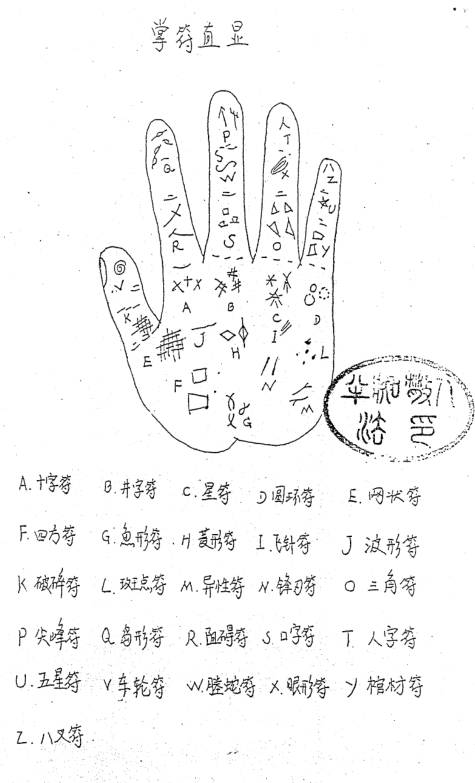 掌符直显
P
T
Z
Q
W
X
U
X
R
S
O
Y
V
A
B
C
D
K
I
E
J
H
L
F
N
M
G
A.十字符 B.井字符 C.星符 D圆环符 E.网状符
F.四方符 G.鱼形符 H菱形符 I.飞针符 J波形符
K破碎符 L.斑点符 M.异性符 N.锋刃符 O三角符
P尖峰符 Q岛形符 R.阻碍符 S.口字符 T人字符
U.五星符 V车轮符 W.螣蛇符 X.眼形符 Y棺材符
Z.八叉符